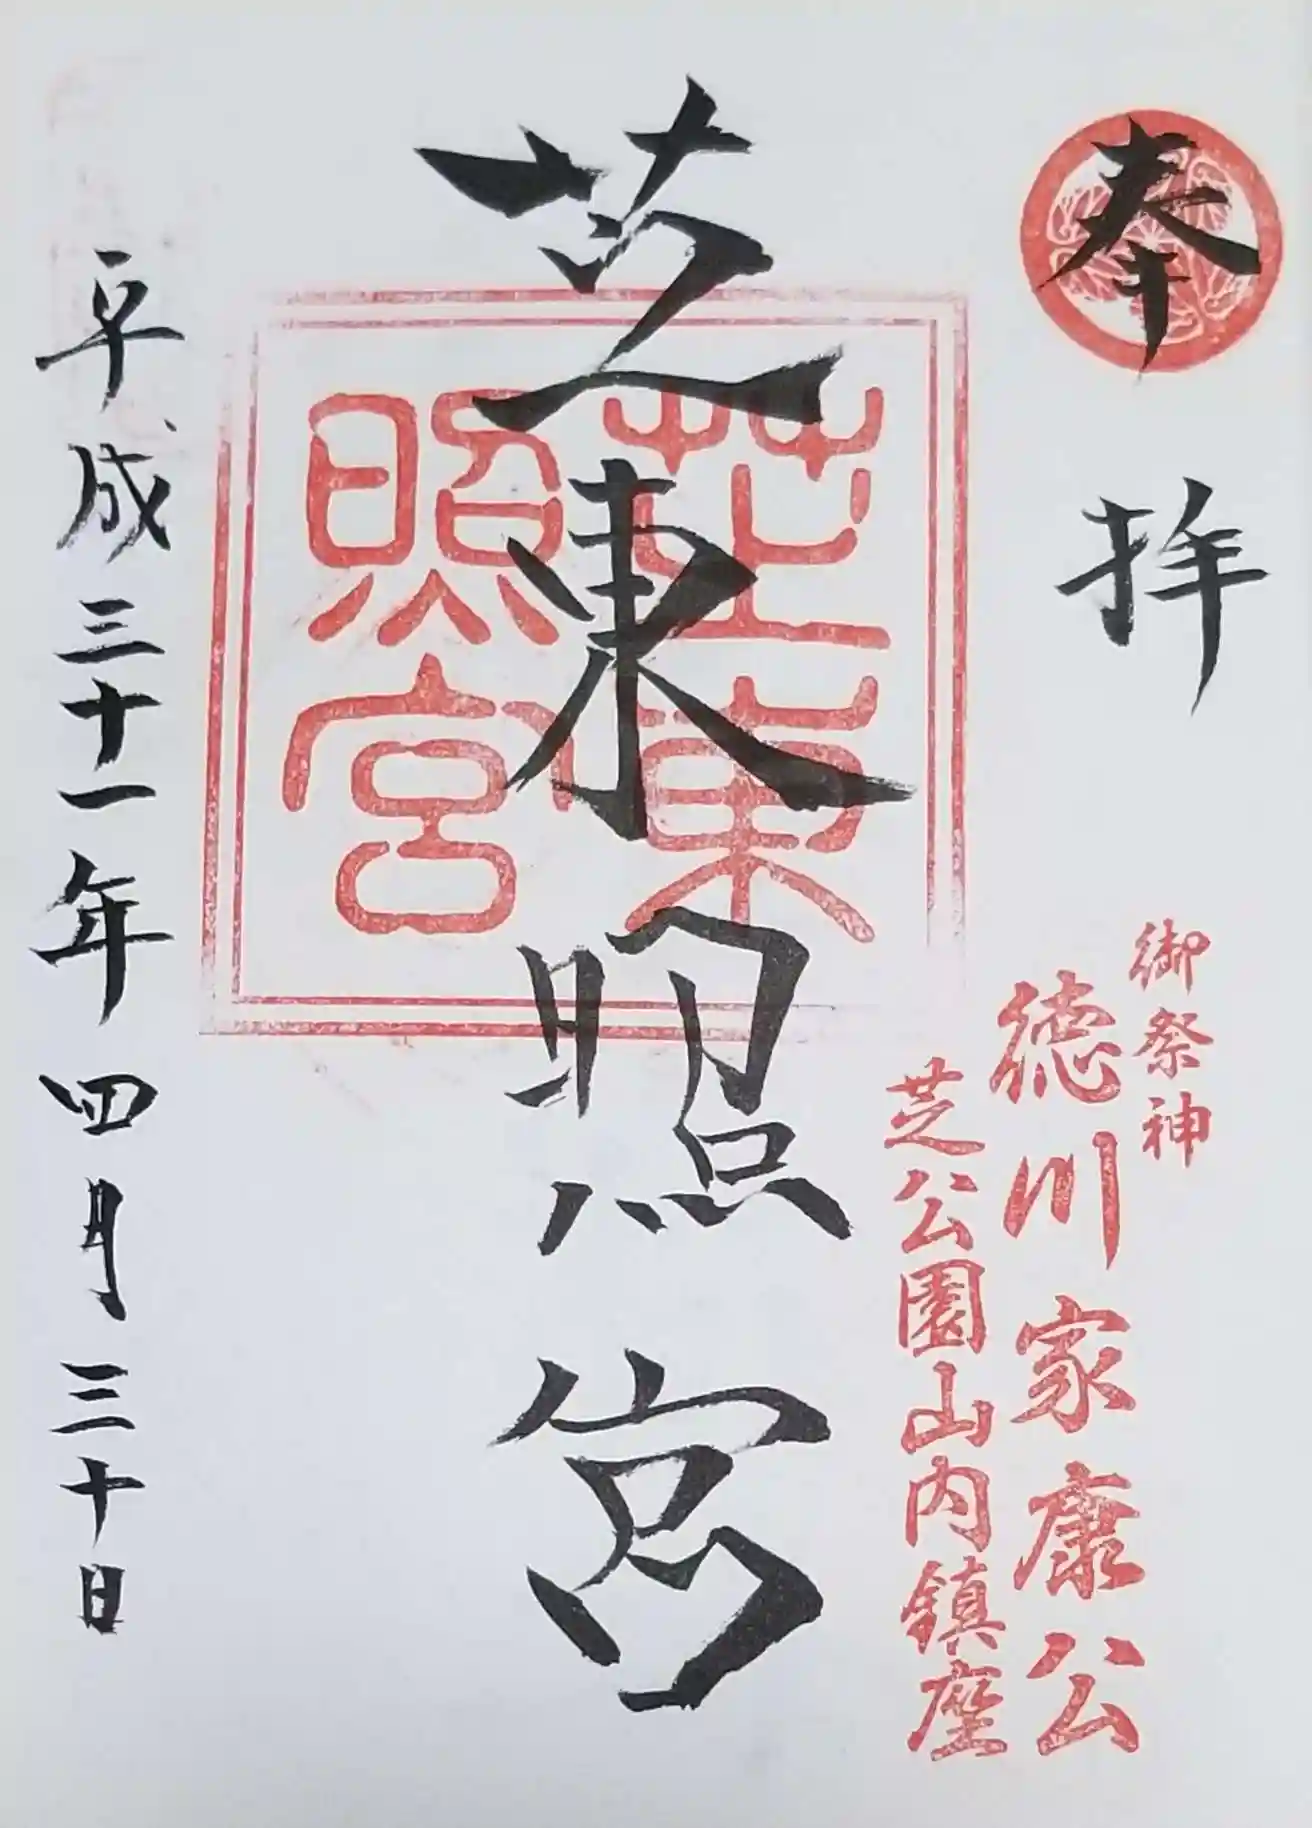 奉拝
御祭神
徳川家康公
芝公園山内鎮座
芝東照宮
芝東
照宮
平成三十一年四月三十日